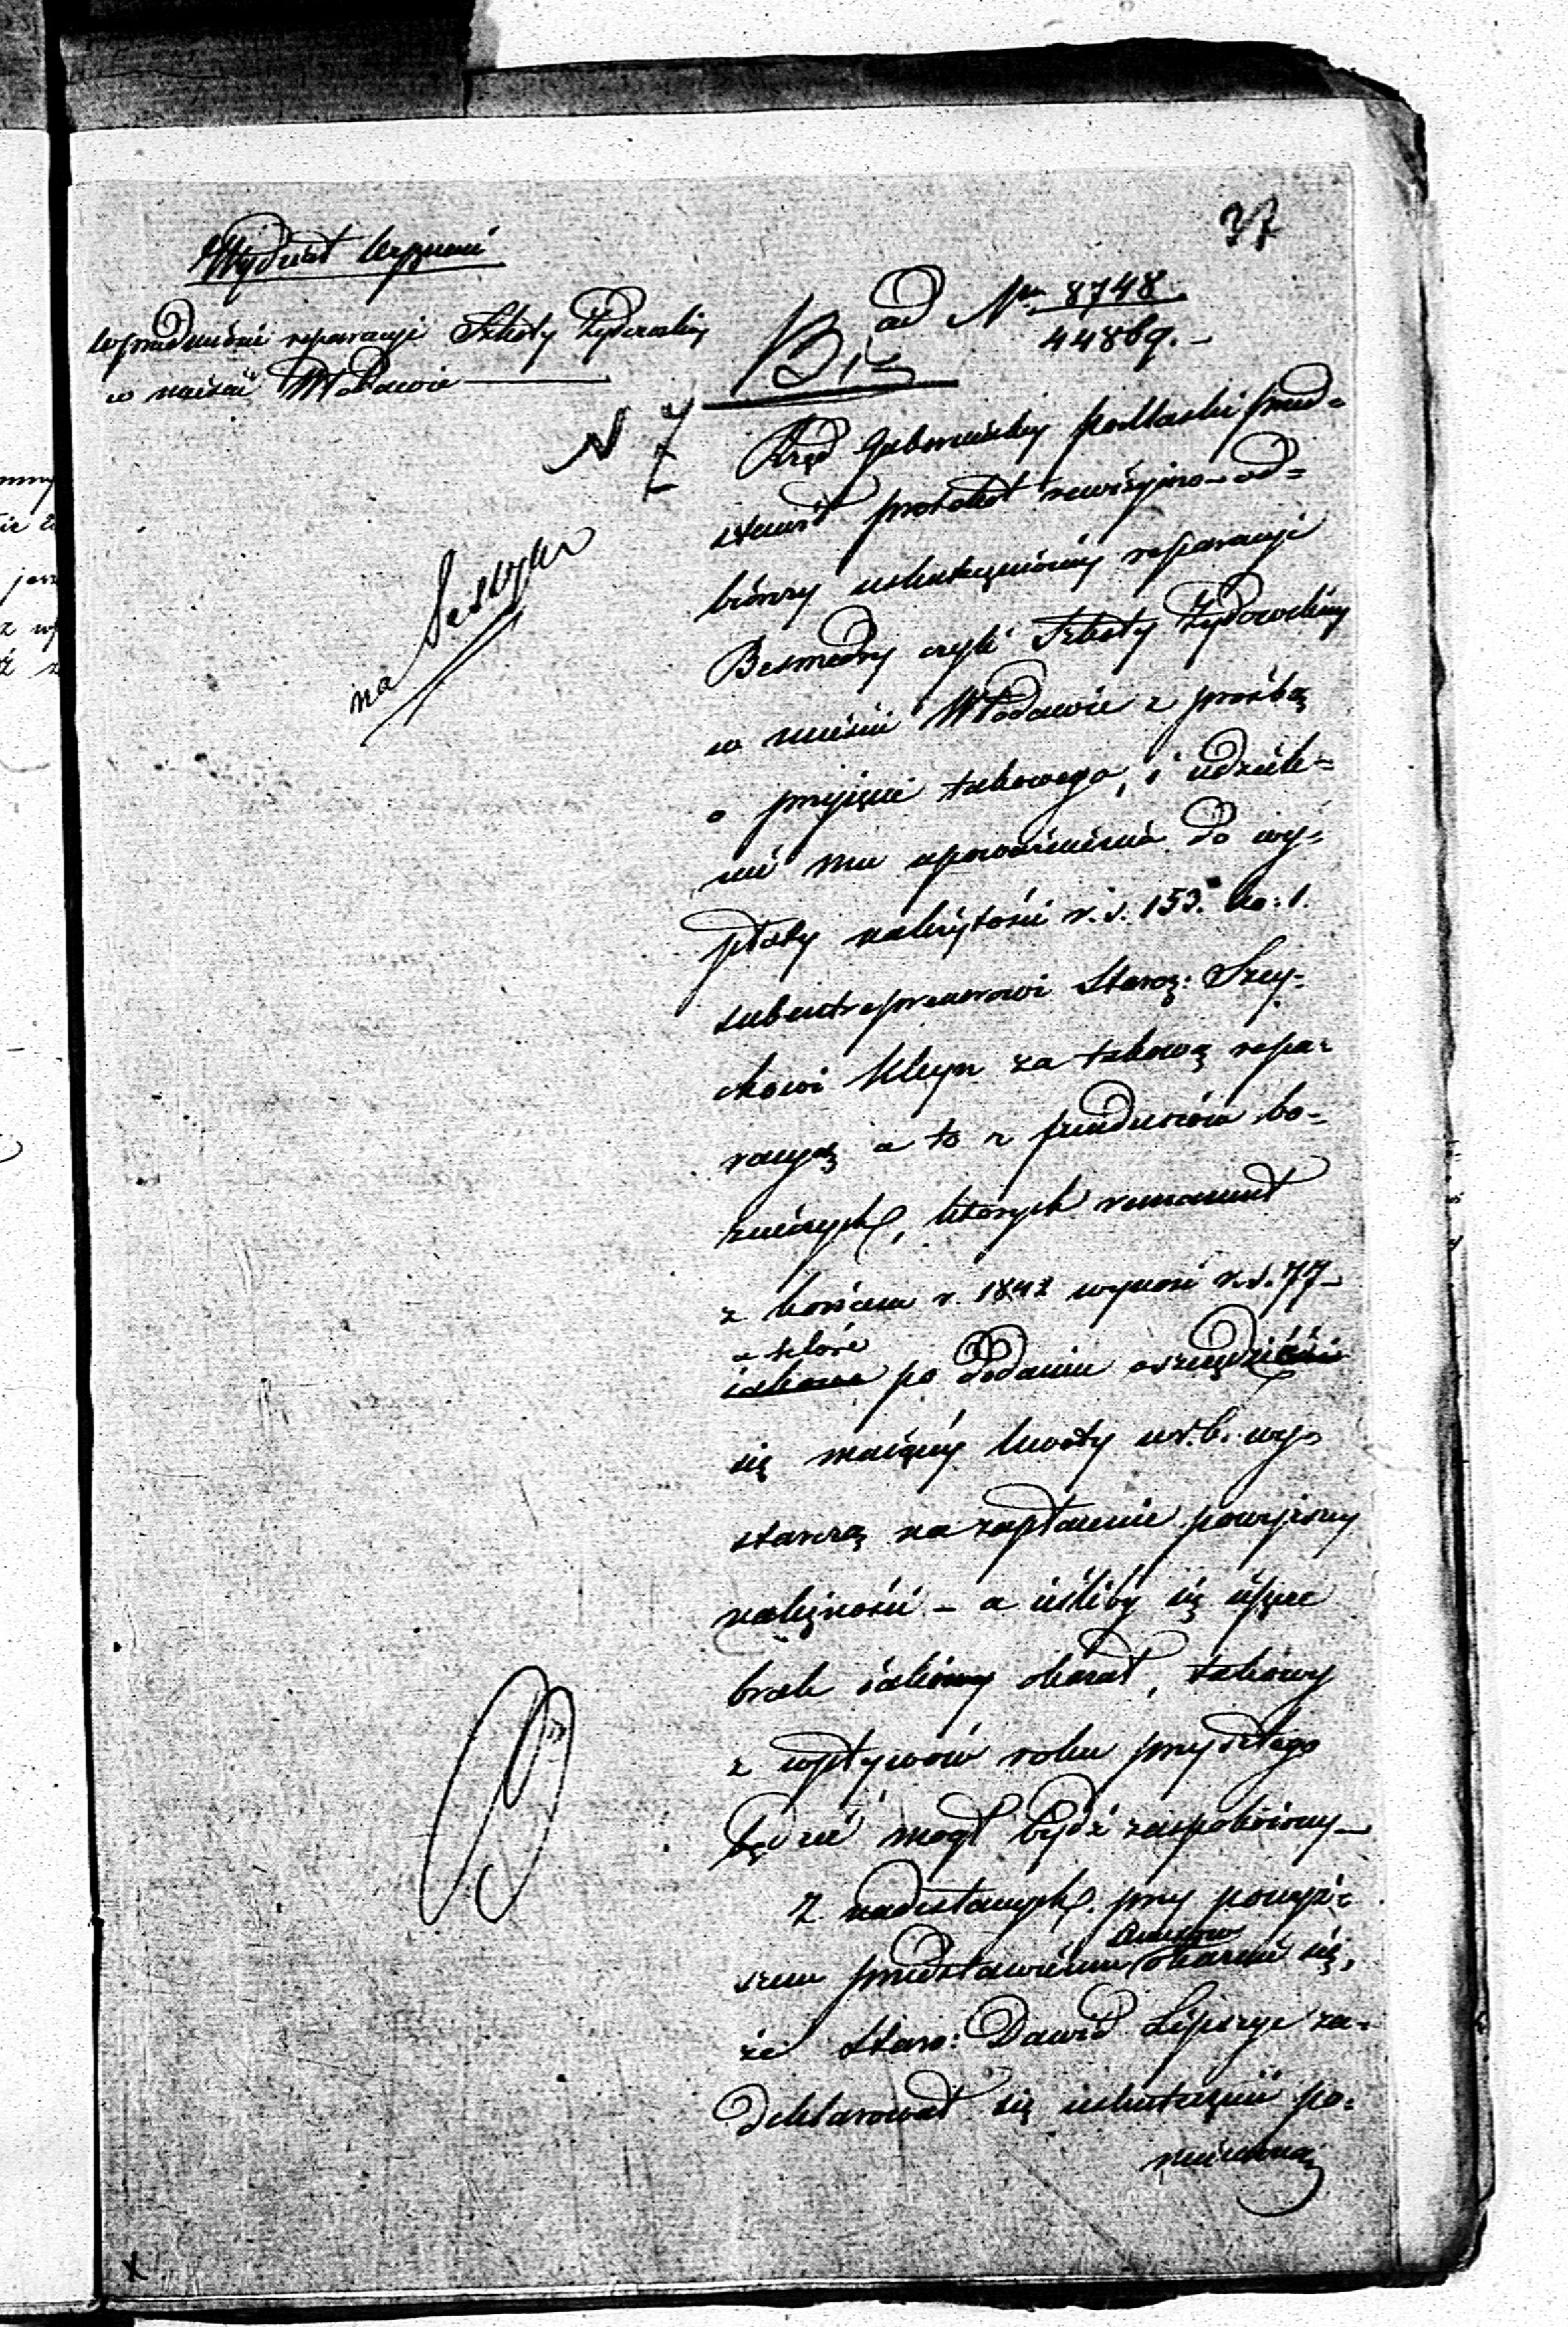 37
Wydział
w przedmiocie reparacyi Szkoły Żydowskiej
w mieście Włodawie
ad Nr 8748
44869.
N 7
na Sessyą
Rząd Gubernialny Podlaski przed=
stawił protokół rewizyjno-od=
biórczy uskutecznioney reparacyi
Besmedry czyli Szkoły Żydowskiey
w mieście Włodawie z prośbą
o przyięcie takowego, i udziele=
nie mu upoważnienia do wy=
płaty należytości r.s. 153. ko: 1.
subentreprenerowi Staroz: Szey=
kowi Kleyn za takową repa=
racyą a to z funduszów bo=
żniczych, których remanent
z końcem r. 1842 wynosi r.s. 77-
a które
iakowe po dodaniu oszczędzić
się maiącey kwoty w r.b. wy=
starczą na zapłacenie powyższey
należności - a ieśliby się ieszcze
brak iakowy okazał, takowy
z wpływów roku przyszłego
będzie mógł bydź zaspokoiony-
Z nadesłanych przy powyż=
szem przedstawieniu okazuie się,
że Staro: Dawid Lipszyc za=
deklarował się uskutecznić po=
mienioną
x